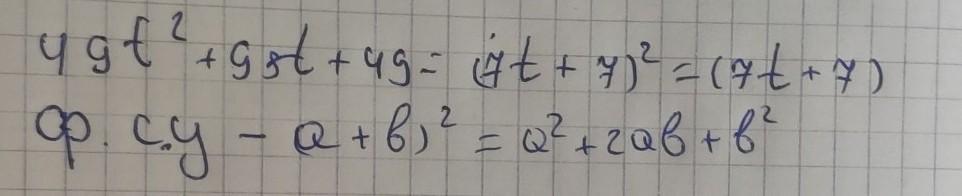 49t² + 98t + 49 = (7t + 7)² = (7t + 7)
ср. с.у – (a + b)² = a² + 2ab + b²